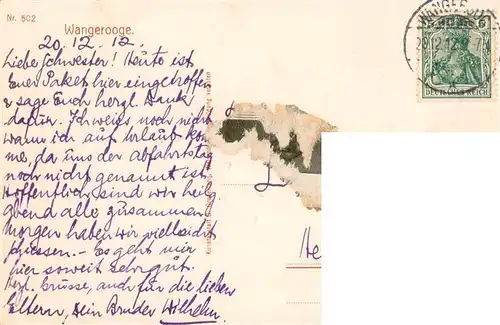 Nr. 502
Wangerooge.
20.12.12.
Liebe Schwester! Heute ist
Euer Paket hier eingetroffen
& sage Euch herzl. Dank
dafür. Ich weiss noch nicht
wann ich auf Urlaub kom
me, da uns der Abfahrtstag
noch nicht genannt ist.
Hoffentlich sind wir heilg
abend alle zusammen
Morgen haben wir vielleicht
schiessen. - Es geht mir
hier soweit sehr gut.
Hzl. Grüsse, auch für die lieben
Eltern, Dein Bruder Wilhelm.
WANGEROOGE
12.12
DEUTSCHES REICH